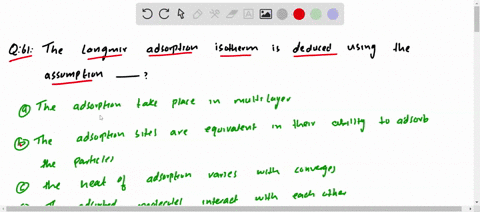 Q:61: The Langmir adsorption isotherm is deduced using the
assumption ___ ?
(a) The adsorption take place in multilayer
(b) The adsorption sites are equivalent in their ability to adsorb
the particles
(c) the heat of adsorption varies with converges
adsorbed molecules interact with each other